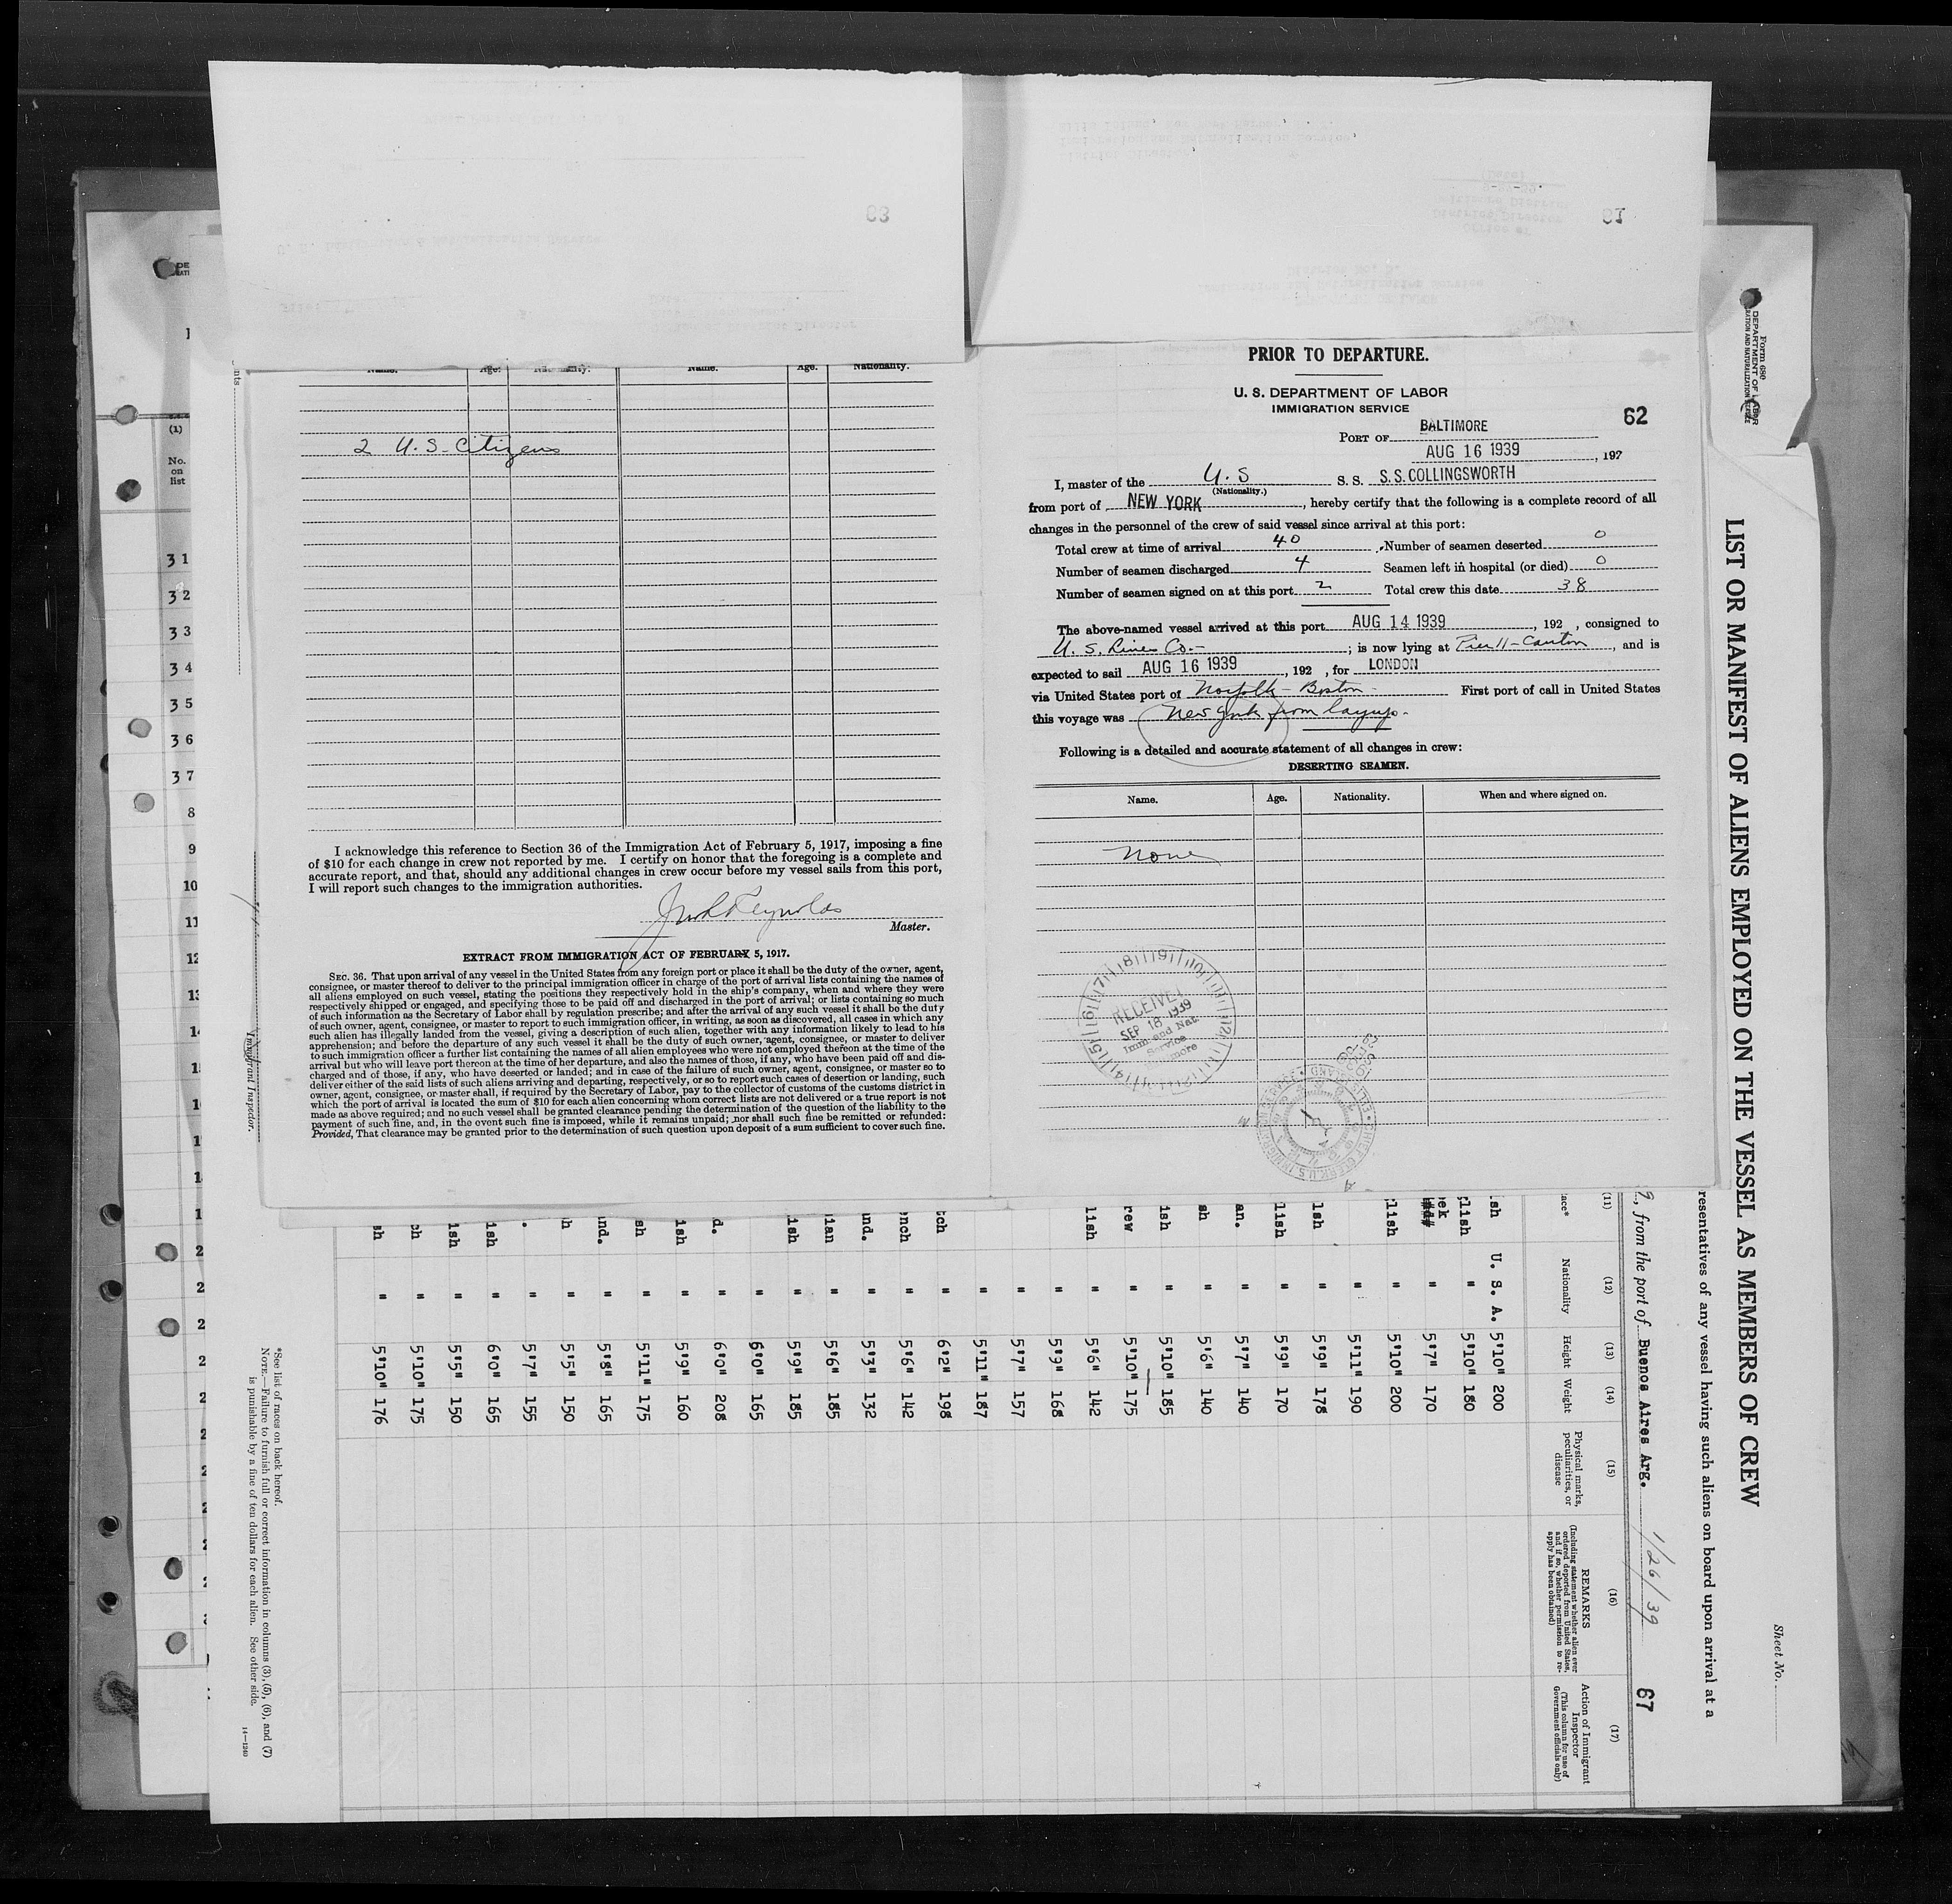 PRIOR TO DEPARTURE.
U. S. DEPARTMENT OF LABOR
IMMIGRATION SERVICE
62
PORT OF BALTIMORE
AUG 16 1939, 192
I, master of the U. S S. S. S.S. COLLINGSWORTH
(Nationality.)
from port of NEW YORK, hereby certify that the following is a complete record of all
changes in the personnel of the crew of said vessel since arrival at this port:
Total crew at time of arrival 40 Number of seamen deserted 0
Number of seamen discharged 4 Seamen left in hospital (or died) 0
Number of seamen signed on at this port 2 Total crew this date 38
The above-named vessel arrived at this port AUG 14 1939, 192 , consigned to
U. S. Lines Co.- ; is now lying at Pier 11-Canton, and is
expected to sail AUG 16 1939, 192 , for LONDON
via United States port of Norfolk - Boston - First port of call in United States
this voyage was New York from layup.
Following is a detailed and accurate statement of all changes in crew:
DESERTING SEAMEN.
Name. Age. Nationality. When and where signed on.
None
RECEIVED
SEP 18 1939
Imm. and Nat.
Service
Name. Age. Nationality. Name. Age. Nationality.
2 U. S. Citizens
I acknowledge this reference to Section 36 of the Immigration Act of February 5, 1917, imposing a fine
of $10 for each change in crew not reported by me. I certify on honor that the foregoing is a complete and
accurate report, and that, should any additional changes in crew occur before my vessel sails from this port,
I will report such changes to the immigration authorities.
Reynolds
Master.
EXTRACT FROM IMMIGRATION ACT OF FEBRUARY 5, 1917.
SEC. 36. That upon arrival of any vessel in the United States from any foreign port or place it shall be the duty of the owner, agent,
consignee, or master thereof to deliver to the principal immigration officer in charge of the port of arrival lists containing the names of
all aliens employed on such vessel, stating the positions they respectively hold in the ship's company, when and where they were
respectively shipped or engaged, and specifying those to be paid off and discharged in the port of arrival; or lists containing so much
of such information as the Secretary of Labor shall by regulation prescribe; and after the arrival of any such vessel it shall be the duty
of such owner, agent, consignee, or master to report to such immigration officer, in writing, as soon as discovered, all cases in which any
such alien has illegally landed from the vessel, giving a description of such alien, together with any information likely to lead to his
apprehension; and before the departure of any such vessel it shall be the duty of such owner, agent, consignee, or master to deliver
to such immigration officer a further list containing the names of all alien employees who were not employed thereon at the time of the
arrival but who will leave port thereon at the time of her departure, and also the names of those, if any, who have been paid off and dis-
charged and of those, if any, who have deserted or landed; and in case of the failure of such owner, agent, consignee, or master so to
deliver either of the said lists of such aliens arriving and departing, respectively, or so to report such cases of desertion or landing, such
owner, agent, consignee, or master shall, if required by the Secretary of Labor, pay to the collector of customs of the customs district in
which the port of arrival is located the sum of $10 for each alien concerning whom correct lists are not delivered or a true report is not
made as above required; and no such vessel shall be granted clearance pending the determination of the question of the liability to the
payment of such fine, and, in the event such fine is imposed, while it remains unpaid; nor shall such fine be remitted or refunded:
Provided, That clearance may be granted prior to the determination of such question upon deposit of a sum sufficient to cover such fine.
Immigrant Inspector.
(1)
No.
on
list
31
32
33
34
35
36
37
8
9
10
11
12
Form 680
DEPARTMENT OF LABOR
Sheet No.
LIST OR MANIFEST OF ALIENS EMPLOYED ON THE VESSEL AS MEMBERS OF CREW
resentatives of any vessel having such aliens on board upon arrival at a
, from the port of Buenos Aires Arg. 1/26/39 67
(11) (12) (13) (14) (15) (16) (17)
Nationality Height Weight Physical marks, peculiarities, or disease
REMARKS
(Including statement whether alien ever ordered deported from United States, and if so, whether permission to re-apply has been obtained)
Action of Immigrant Inspector
(This column for use of Government officials only)
ish U. S. A. 5'10" 200
lish " 5'10" 180
ek " 5'7" 170
lish " 5'10" 200
" 5'11" 190
ish " 5'9" 178
lish " 5'9" 170
an. " 5'7" 140
sh " 5'6" 140
ish " 5'10" 185
rew " 5'10" 175
lish " 5'6" 142
" 5'9" 168
" 5'7" 157
" 5'11" 187
tch " 6'2" 198
ench " 5'6" 142
und. " 5'3" 132
ian " 5'6" 185
ish " 5'9" 185
" 6'0" 165
d. " 6'0" 208
ish " 5'9" 160
sh " 5'11" 175
and. " 5'8" 165
h " 5'5" 150
. " 5'7" 155
ish " 6'0" 165
ish " 5'5" 150
ch " 5'10" 175
sh " 5'10" 176
*See list of races on back hereof.
NOTE.—Failure to furnish full or correct information in columns (3), (5), (6), and (7)
is punishable by a fine of ten dollars for each alien. See other side.
14—1240